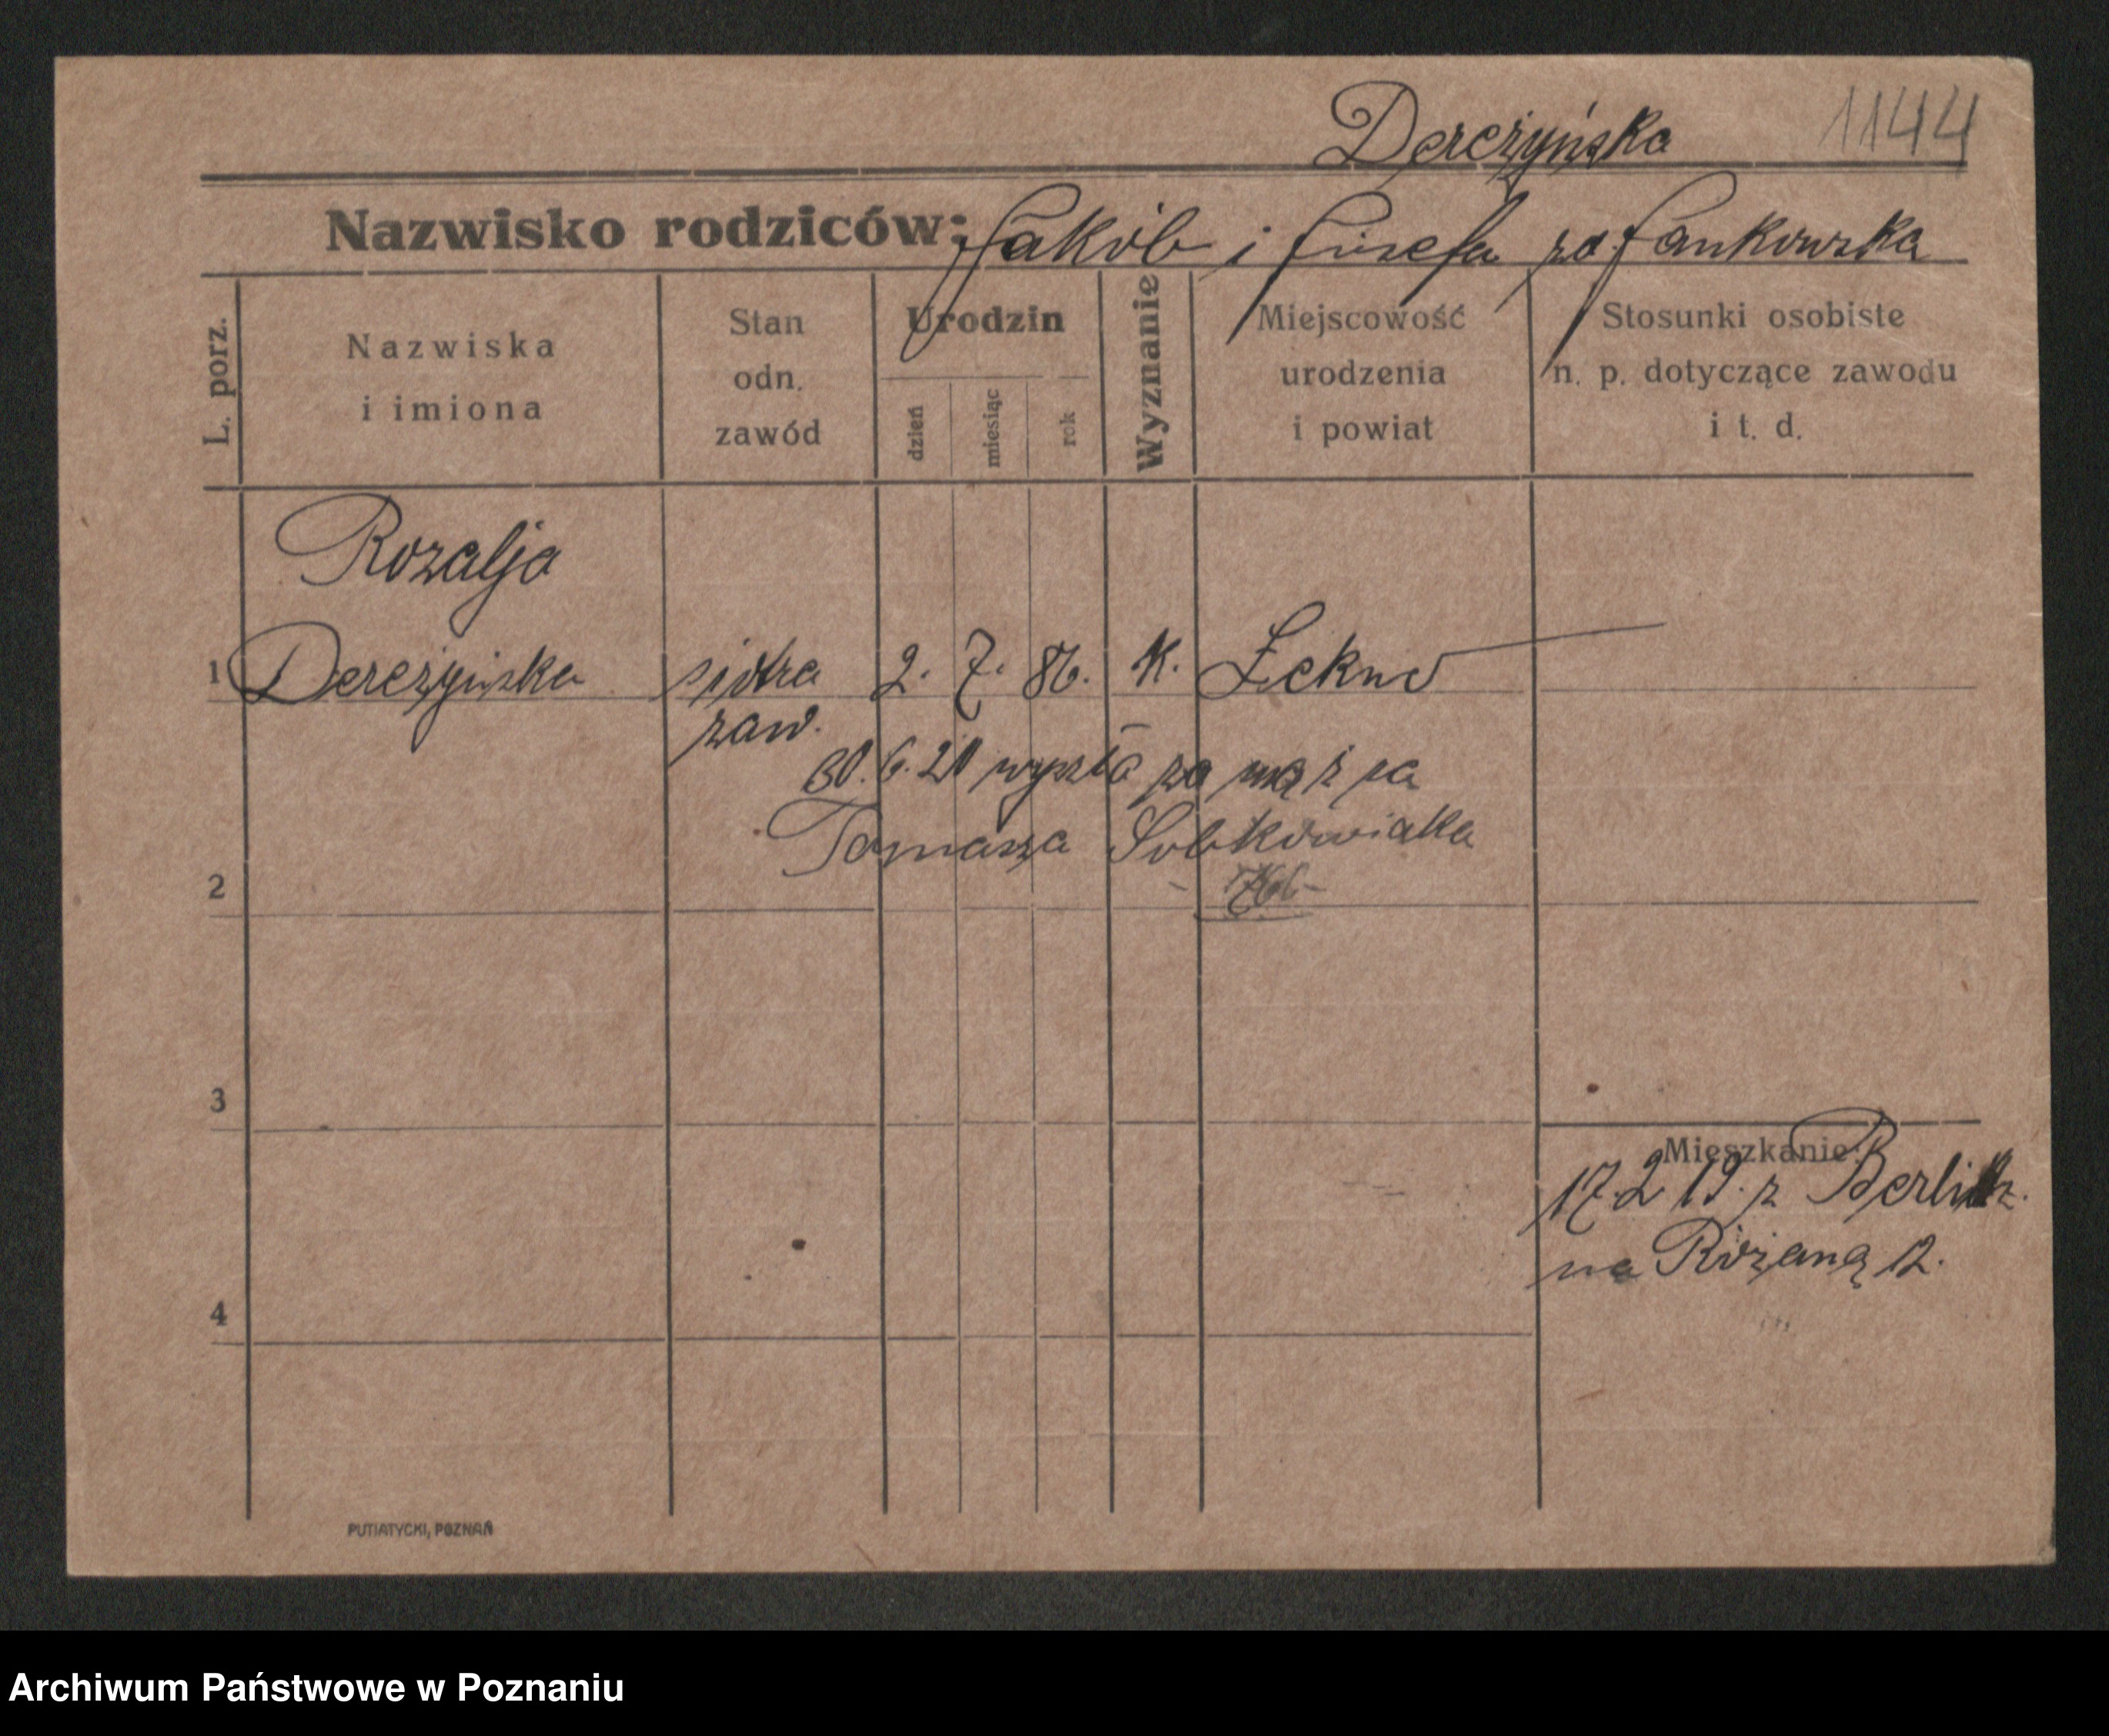 Dereżyńska 1144
Nazwisko rodziców: Jakób i Józefa zd. Jankowska
L. porz.
Nazwiska
i imiona
Stan
odn.
zawód
Urodzin
dzień
miesiąc
rok
Wyznanie
Miejscowość
urodzenia
i powiat
Stosunki osobiste
n. p. dotyczące zawodu
i t. d.
Rozalja
1 Dereżyńska siostra 2. 7. 86. K. Łekno
zaw.
30. 6. 20 wyszła za mąż za
Tomasza Sobkowiaka
2
3
Mieszkanie:
17.2 19. z
na Różaną 12.
4
PUTIATYCKI, POZNAŃ
Archiwum Państwowe w Poznaniu